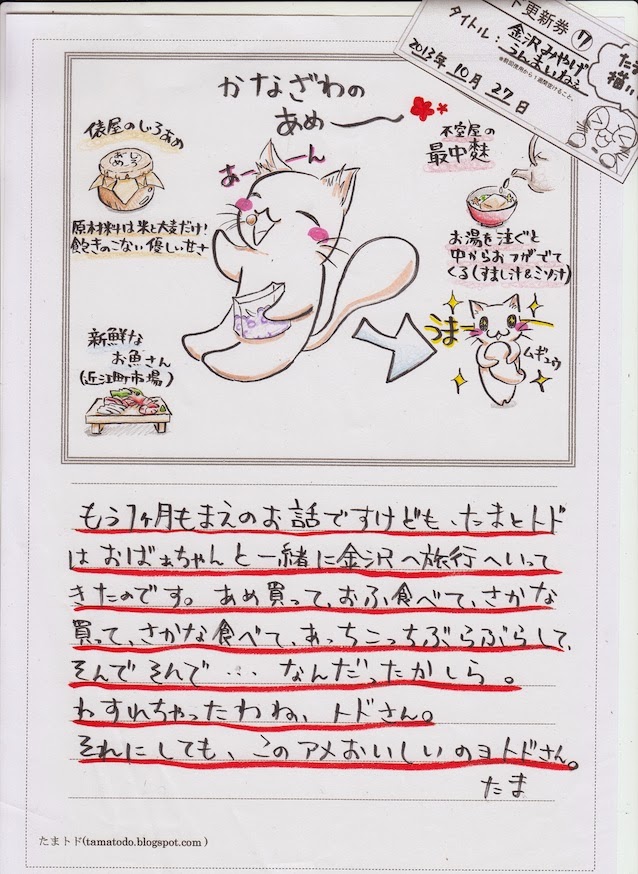 ド更新券 ⑰
タイトル：金沢みやげ
うんまいねぇ
2013年 10月 27日
かなざわの
あめ〜
俵屋のじろあめ
じろ
あめ
原材料は米と大麦だけ！
飽きのこない優しい甘さ
あーーん
不室屋の
最中麩
お湯を注ぐと
中からおフがでて
くる(すまし汁&ミソ汁)
うまー
ムギュウ
新鮮な
お魚さん
(近江町市場)
もう1ヶ月もまえのお話ですけども、たまとトド
はおばぁちゃんと一緒に金沢へ旅行へいって
きたのです。あめ買って、おふ食べて、さかな
買って、さかな食べて、あっちこっちぶらぶらして、
そんで それで … なんだったかしら。
わすれちゃったわね、トドさん。
それにしても、このアメおいしいのョトドさん。
たま
たまトド(tamatodo.blogspot.com )